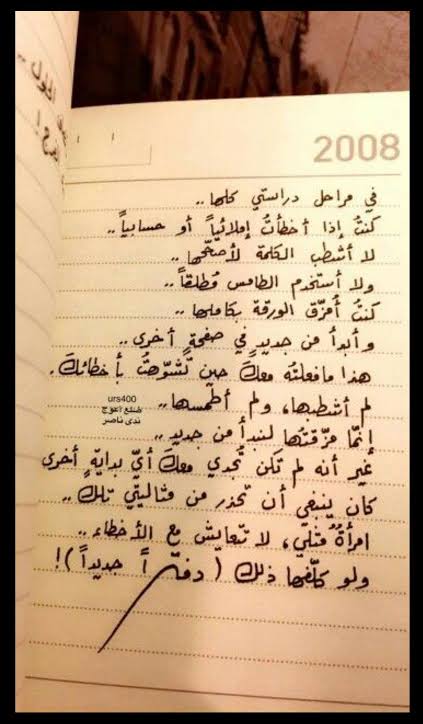 2008
في مراحل دراستي كلها ..
كنتُ إذا أخطأتُ إملائياً أو حسابياً ..
لا أشطب الكلمة لأصحّحها ..
ولا أستخدم الطامس مُطلقاً ..
كنتُ أُمزّق الورقة بكاملها ..
وأبدأ من جديدٍ في صفحةٍ أخرى ..
هذا ما فعلتُه معكَ حين تشوّهتُ بأخطائكَ .
لم أشطبها، ولم أطمسها ..
إنّما مزّقتُها لنبدأ من جديد ..
غير أنه لم تكن تُجدي معكَ أيّ بدايةٍ أخرى
كان ينبغي أن تحذر من مثاليتي تلك ..
امرأةٌ مثلي، لا تتعايش مع الأخطاء ..
ولو كلّفها ذلك ( دفتراً جديداً ) !
urs400
ضلع اعوج
ندى ناصر